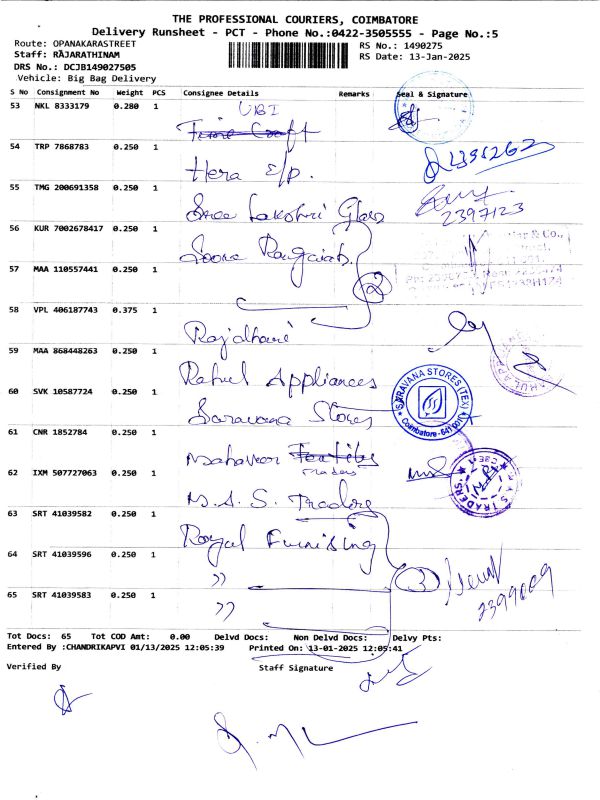 THE PROFESSIONAL COURIERS, COIMBATORE
Delivery Runsheet - PCT - Phone No.:0422-3505555 - Page No.:5
Route: OPANAKARASTREET RS No.: 1490275
Staff: RAJARATHINAM RS Date: 13-Jan-2025
DRS No.: DCJB149027505
Vehicle: Big Bag Delivery
S No Consignment No Weight PCS Consignee Details Remarks Seal & Signature
53 NKL 8333179 0.280 1 UBI
54 TRP 7868783 0.250 1 Hera E/P.
2395262
55 TMG 200691358 0.250 1 Sree Lakshmi Glass
2397123
56 KUR 7002678417 0.250 1
57 MAA 110557441 0.250 1
2
58 VPL 406187743 0.375 1 Rajdhani
59 MAA 868448263 0.250 1 Rahul Appliances
60 SVK 10587724 0.250 1 Saravana Stores
SARAVANA STORES (TEX)
Coimbatore - 641001
61 CNR 1852784 0.250 Mahaveer Traders
62 IXM 507727063 0.250 1 M.A.S. Traders
TRADERS
63 SRT 41039582 0.250 1 Royal Furnising
64 SRT 41039596 0.250 1 "
3
65 SRT 41039583 0.250 1 "
Tot Docs: 65 Tot COD Amt: 0.00 Delvd Docs: Non Delvd Docs: Delvy Pts:
Entered By :CHANDRIKAPVI 01/13/2025 12:05:39 Printed On: 13-01-2025 12:05:41
Verified By Staff Signature